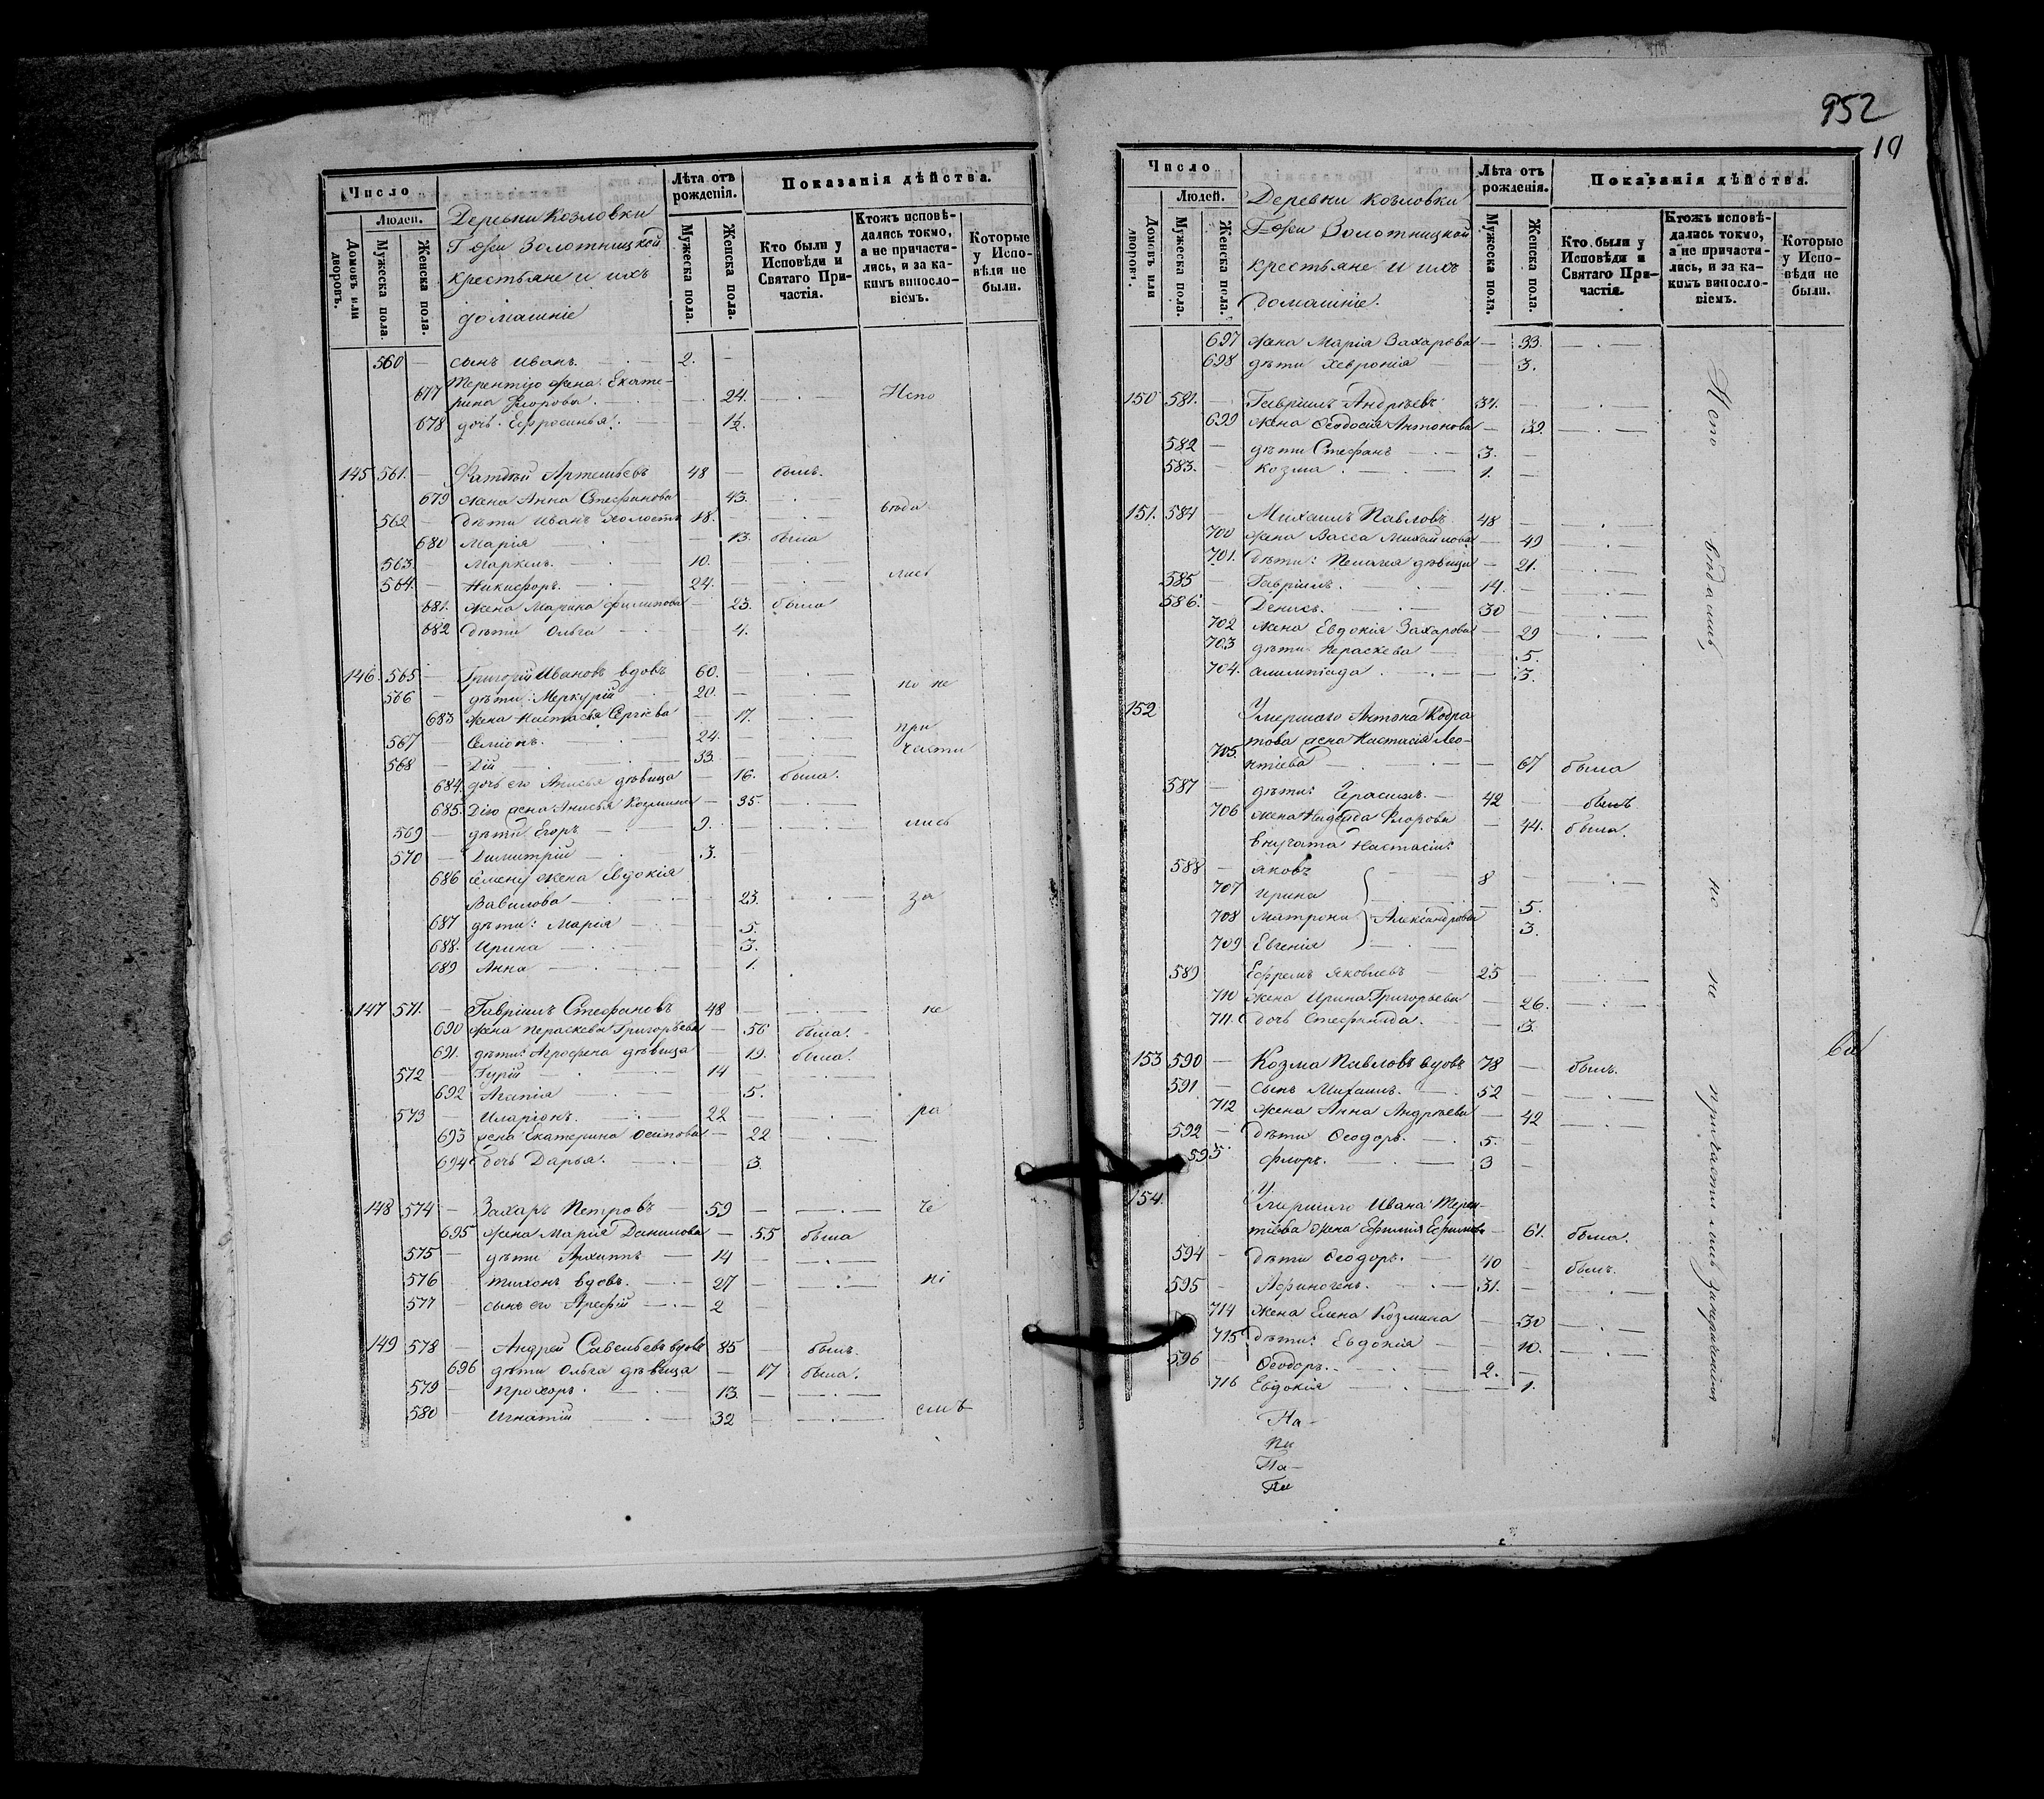 952
10
Число
Людей.
Домовъ или дворовъ.
Мужеска пола
Женска пола.
Деревни Козловки
Г-жи Золотницкой
крестьяне и ихъ
домашніе
Лѣта отъ рожденія.
Мужеска пола.
Женска пола.
Показанія дѣйства.
Кто были у Исповѣди и Святаго При-частія.
Ктожъ исповѣ-дались токмо, а не причасти-лись, и за ка-кимъ винословіемъ.
Которые у Испо-вѣди не были.
560 — сынъ Иванъ. — 2. —
Терентію жена Екате-
677 рина Флорова. — 24. — Испо
678 дочь Ефросинья. — 1½.
145 561. — Артемьевъ 48 — былъ.
679 жена Анна Стефанова — 43. —
562 — дѣти Иванъ холостъ 18. — вѣда
680 Марія — 13. была
563. — Маркелъ. 10.
564. — Никифоръ. — 24. — лись
681. жена Марина Филипова — 23. была
682 дѣти Ольга — 4.
146. 565 — Григорій Ивановъ вдовъ 60. —
566 — дѣти: Меркурій — 20. — но не
683 жена Настасья Сергіева — 17. —
567 Семіонъ. — 24. — при
568 — Дій — 33. — части
684. дочь его Анисья дѣвица — 16. была.
685. Дію жена Анисья Козмина — 35. —
569 — дѣти Егоръ — 9. — лись
570 — Димитрій — 3. —
686 Семену жена Евдокія
Вавилова — 23. — за
687 дѣти: Марія — 5.
688. Ирина — 3.
689 Анна — 1.
147 571. — Гавріилъ Стефановъ 48 — не
690 жена Параскева Григорьева — 56 была.
691. дѣти: Агрофена дѣвица — 19. была.
572 — Гурій — 14 —
692 Агапія — 5.
573 — Иларіонъ. — 22 — ра
693 жена Екатерина Осипова — 22 —
694 дочь Дарья. — 3.
148 574 — Захаръ Петровъ — 59 — че
695 жена Марія Данилова — 55 была
575 — дѣти Архипъ — 14 —
576 — Тихонъ вдовъ. — 27 — ні
577 — сынъ его Арефій — 2 —
149 578 — Андрей Савельевъ вдовъ 85 — былъ.
696 дѣти Ольга дѣвица — 17 была.
579 — Прохоръ. — 13. —
580 — Игнатій — 32 — емъ
Число
Людей.
Домовъ или дворовъ.
Мужеска пола.
Женска пола.
Деревни Козловки
Г-жи Золотницкой
крестьяне и ихъ
домашніе.
Лѣта отъ рожденія.
Мужеска пола.
Женска пола.
Показанія дѣйства.
Кто были у Исповѣди и Святаго При-частія.
Ктожъ исповѣ-дались токмо, а не причасти-лись, и за ка-кимъ винословіемъ.
Которые у Испо-вѣди не были.
697 жена Марія Захарова — 33. —
698 дѣти Хевронія — 3.
150 581. — Гавріилъ Андрѣевъ 37. —
699 жена Ѳеодосія Антонова — 39. —
582 — дѣти Стефанъ — 3. —
583. — Козма — 1. —
151. 584 — Михаилъ Павловъ 48 —
700 жена Васса Михайлова — 49 —
701. дѣти: Пелагея дѣвица — 21. —
585 — Гавріилъ. 14. —
586. — Денисъ. — 30 —
702 жена Евдокія Захарова — 29 —
703 дѣти Параскева — 5.
704. — 3.
152 Умершаго Антона Кодра
това жена Настасія Лео-
705. нтіева — 67 была
587 — дѣти: Герасимъ. — 42 — былъ
706 жена Надежда Флорова — 44. была.
внучата Настасіи:
588 — Яковъ — 8 —
707 Ирина — 5.
708 Матрона Александровы 3.
709 Евгенія —
589 Ефремъ Яковлевъ — 25 —
710 жена Ирина Григорьева — 26. —
711. дочь Стефанида. — 3.
153 590 — Козма Павловъ вдовъ 78 — былъ.
591 — сынъ Михаилъ. — 52 —
712 жена Анна Андрѣева — 42 —
592 — дѣти Ѳеодоръ. — 5. —
593 Флоръ. — 3 —
154. Умершаго Ивана Терен-
тіева жена Ефимія Ефимова — 61. была.
594 — дѣти Ѳеодоръ. — 40 — былъ.
595 — Афиногенъ. — 31. —
714 жена Елена Козмина — 30 —
715 дѣти: Евдокія — 10. —
596 — Ѳеодоръ. — 2. —
716 Евдокія — 1.
Испо вѣдались, но не причастились за нераченіемъ
На-
Па-